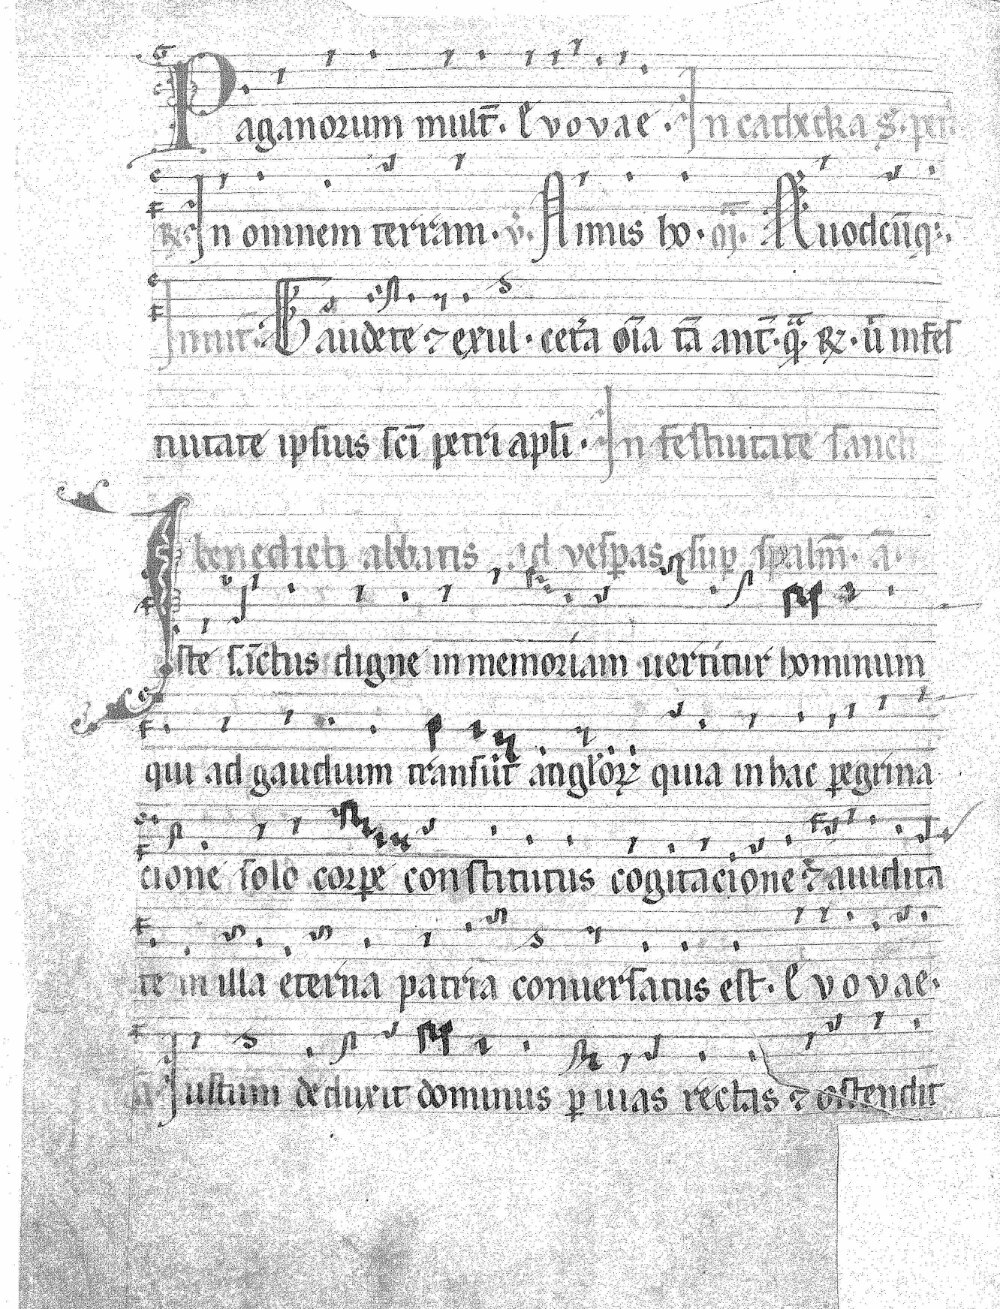 Paganorum mult̄. Evovae. In cathedra s̄. petri
R. In omnem terram. v̄. Nimis ho. Quodcūq;.
Introit̄. Gaudete ⁊ exul. cetera om̄ia tā ant̄. q̄. R. ūt in fes
tiuitate ipsius sc̄i petri apl̄i. In festiuitate sancti
benedicti abbatis ad vesperas sup̄ psalm̄. ā.
Iste sāctus digne in memoriam uertitur hominum
qui ad gaudium transiit angloꝝ quia in hac peregrina
cione solo corpe constitutus cogitacione ⁊ auidita
te in illa eterna patria conuersatus est. Evovae.
ā. Iustum deduxit dominus p uias rectas ⁊ ostendit